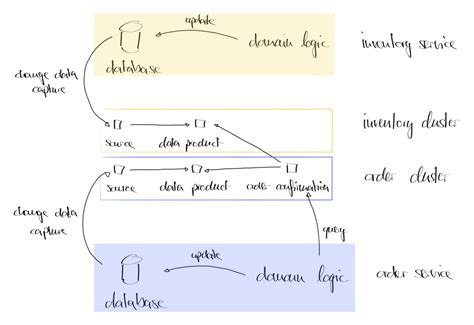 update
domain logic
inventory service
database
change data
capture
inventory cluster
source
data product
order cluster
source
data product
order confirmation
change data
capture
query
update
domain logic
order service
database